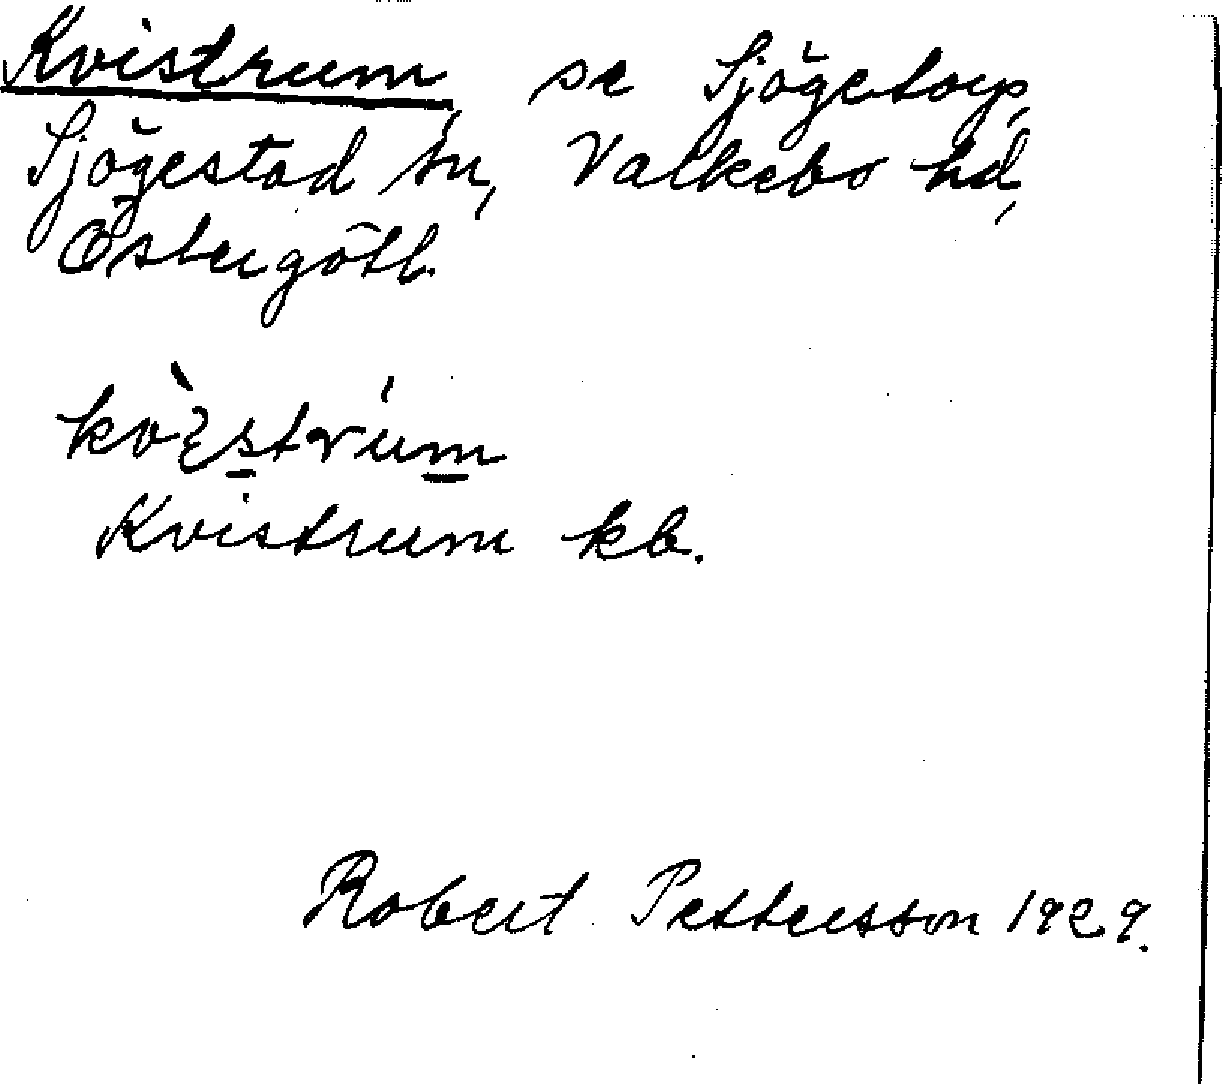 Kvistrum, se Sjögetorp,
Sjögestad sn, Valkebo hd,
Östergötl.
Kvistrum kb.
Robert Pettersson 1929.